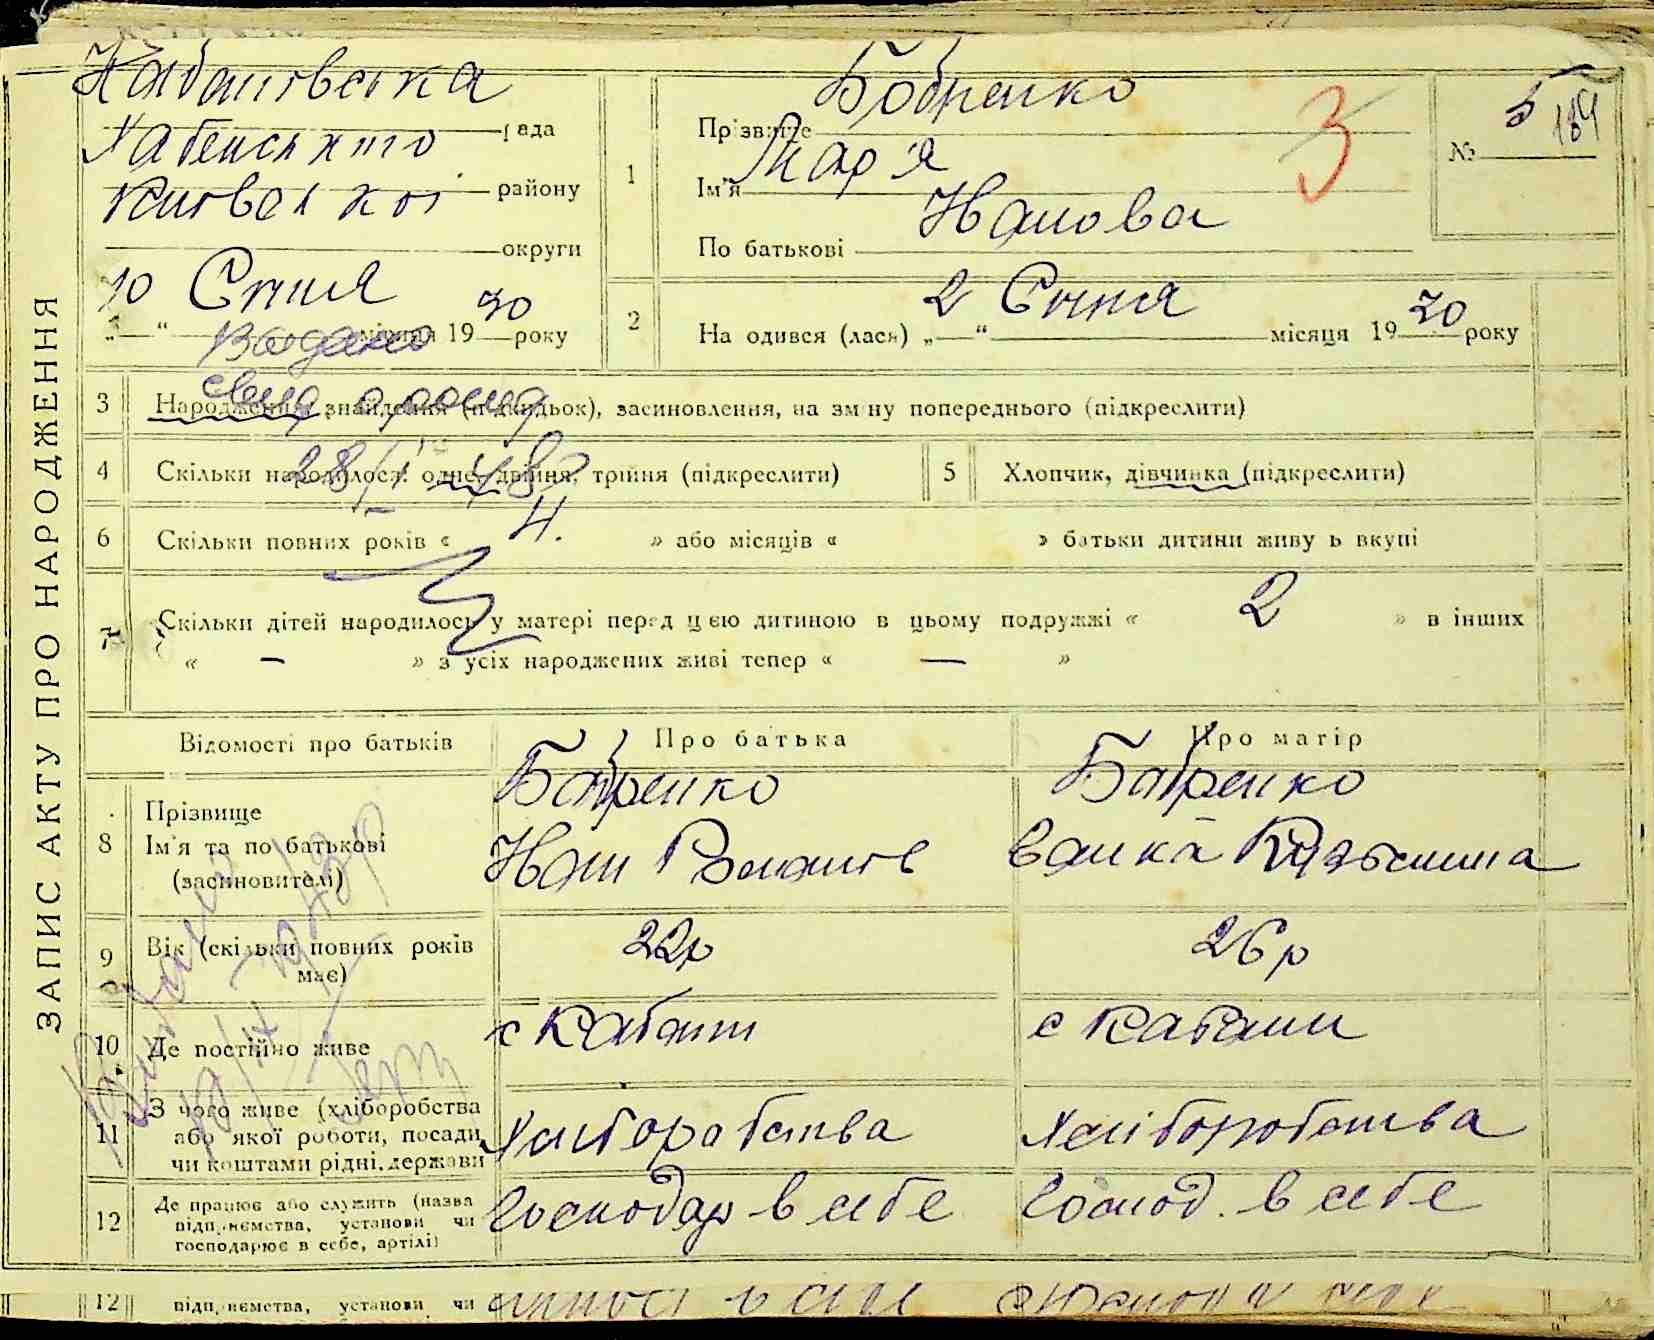 ЗАПИС АКТУ ПРО НАРОДЖЕННЯ
Кабанівська
рада
Хабенського
району
Київської
округи
"10" Січня місяця 1930 року
1
Прізвище Бобренко
Ім'я Мар'я
По батькові Иванова
3
№ 5
184
2
На одився (лася) „2" Січня місяця 1930 року
Видано
свид о рожд
28/I 48
3 Народження, знайдення (підкидьок), засиновлення, на зміну попереднього (підкреслити)
4 Скільки народилося: одне, двійня, трійня (підкреслити)
5 Хлопчик, дівчинка (підкреслити)
6 Скільки повних років « 4. » або місяців « » батьки дитини живуть вкупі
7 Скільки дітей народилось у матері перед цією дитиною в цьому подружжі « 2 » в інших
« — » з усіх народжених живі тепер « — »
Відомості про батьків Про батька Про матір
8 Прізвище
Ім'я та по батькові
(засиновителі)
Бобренко Бобренко
Иван Романов Ганка Кузьмина
9 Вік (скільки повних років
має)
22р 26р
10 Де постійно живе с Кабани с Кабани
11 З чого живе (хліборобства
або якої роботи, посади,
чи коштами рідні, держави
Хліборобства Хліборобства
12 Де працює або служить (назва
підприємства, установи чи
господарює в себе, артілі)
Господар в себе Господ. в себе
12 підприємства, установи чи